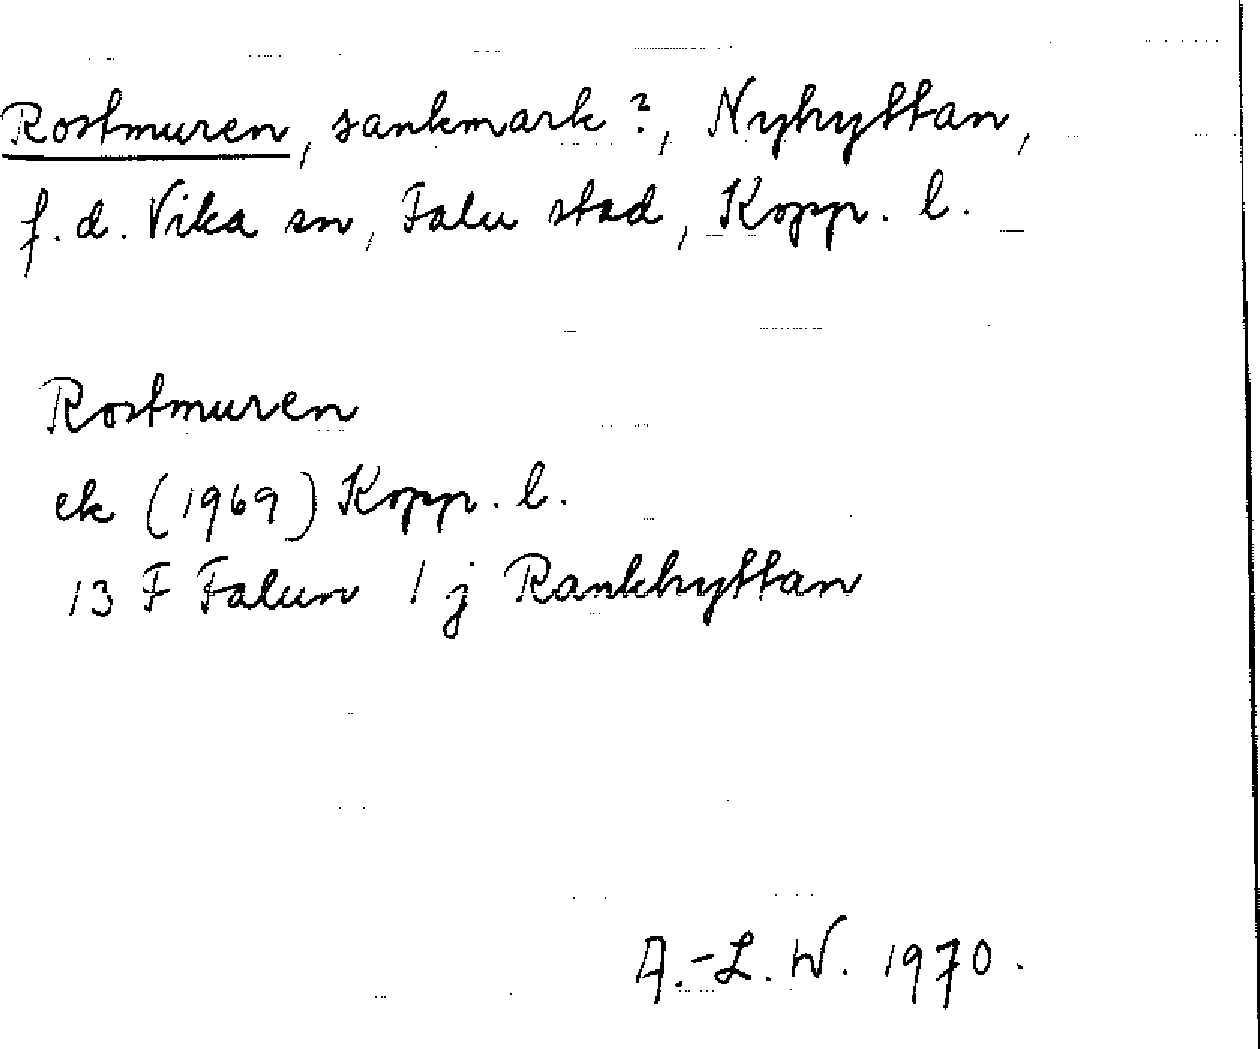 Rostmuren, sankmark?, Nyhyttan,
f.d. Vika sn, Falu stad, Kopp. l.
Rostmuren
ek (1969) Kopp. l.
13 F Falun 1 j Rankhyttan
A.-L. W. 1970.